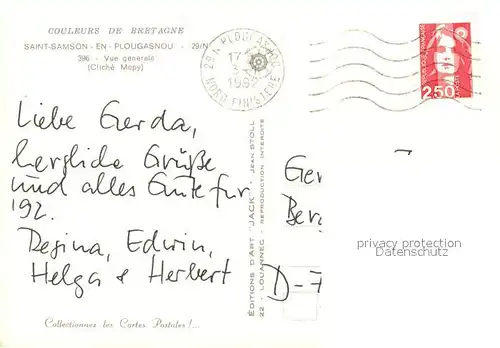 COULEURS DE BRETAGNE
SAINT-SAMSON - EN - PLOUGASNOU - 29/N
396 - Vue generale
(Cliché Mopy)
29N PLOUGASNOU
17
3
NORD FINISTERE
2,50
Liebe Gerda,
herzliche Grüße
und alles Gute für
'92.
Regina, Edwin,
Helga & Herbert
EDITIONS D'ART "JACK" - Jean STOLL
22 - LOUANNEC - REPRODUCTION INTERDITE
Ger
Ber
D-7
privacy protection
Datenschutz
Collectionnez les Cartes Postales !...